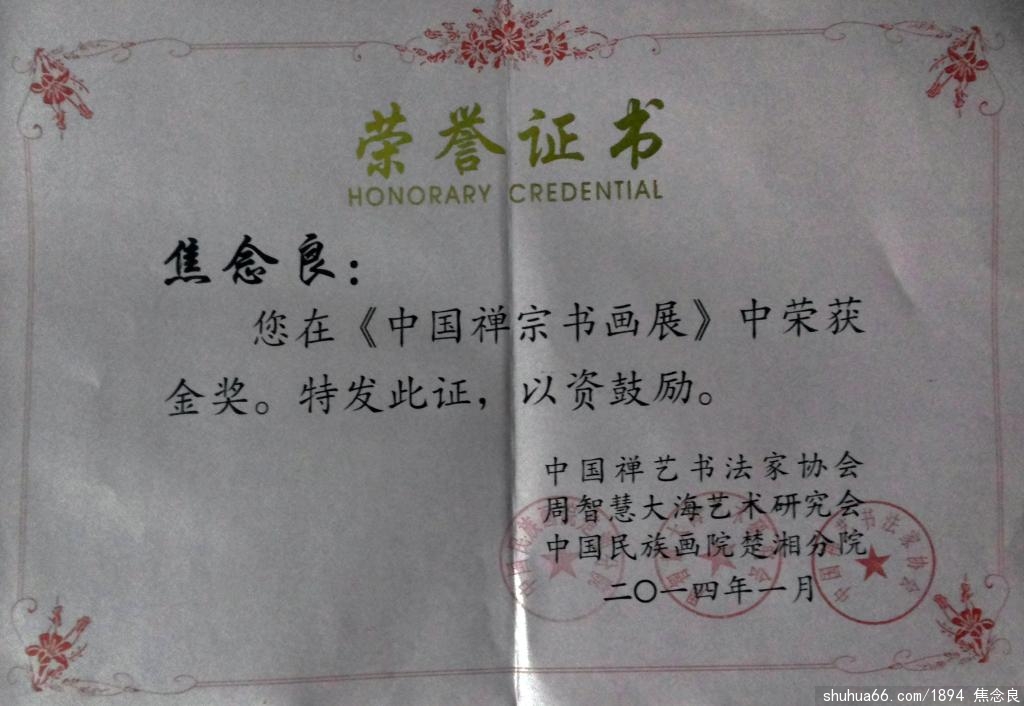 荣誉证书
HONORARY CREDENTIAL
焦念良：
您在《中国禅宗书画展》中荣获
金奖。特发此证，以资鼓励。
中国禅艺书法家协会
周智慧大海艺术研究会
中国民族画院楚湘分院
二〇一四年一月
shuhua66.com/1894 焦念良